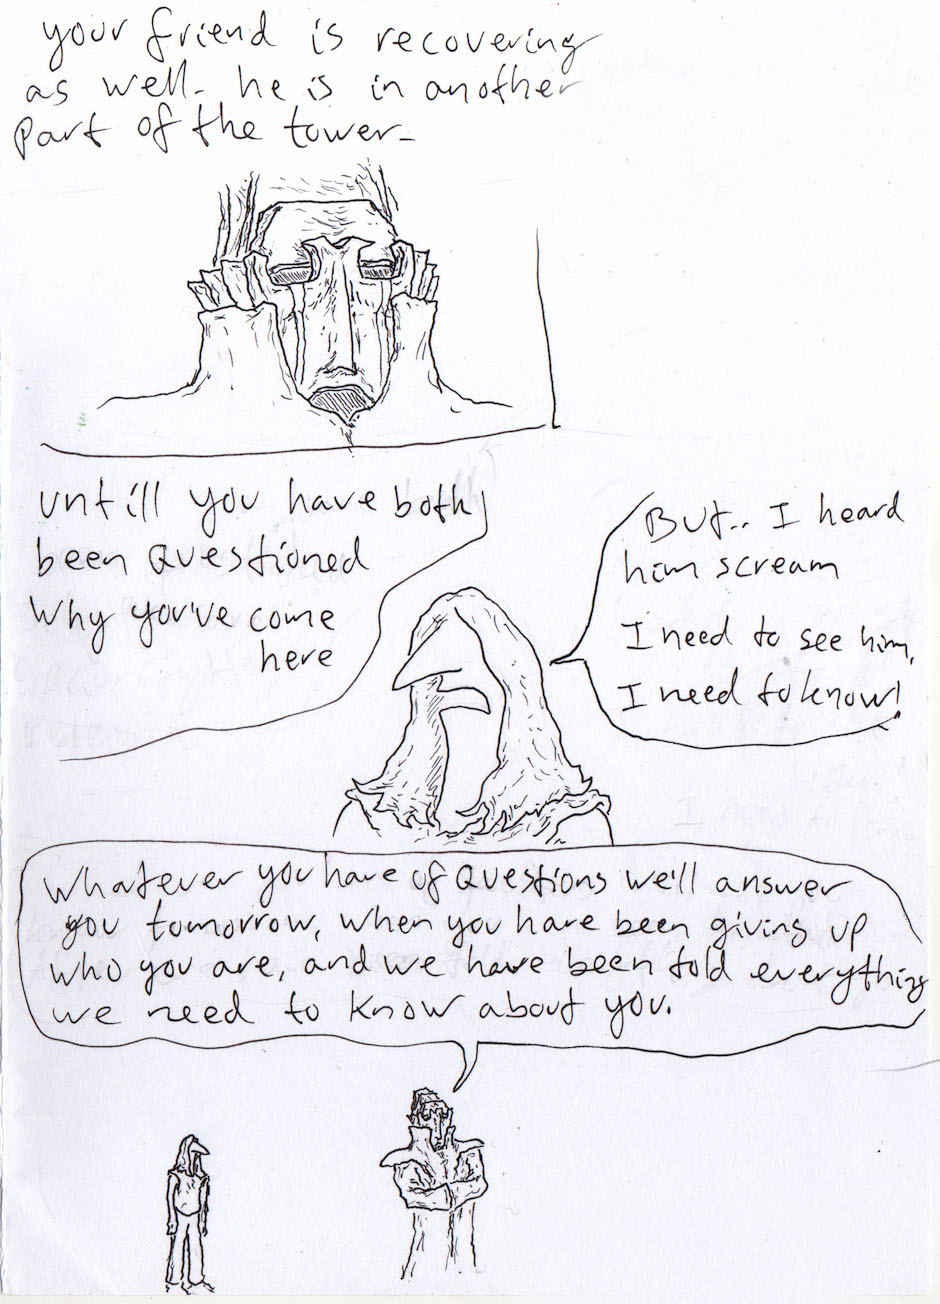 your friend is recovering
as well. he is in another
part of the tower-
untill you have both
been questioned
why you've come
here
But.. I heard
him scream
I need to see him,
I need to know!
whatever you have of questions we'll answer
you tomorrow, when you have been giving up
who you are, and we have been told everything
we need to know about you.